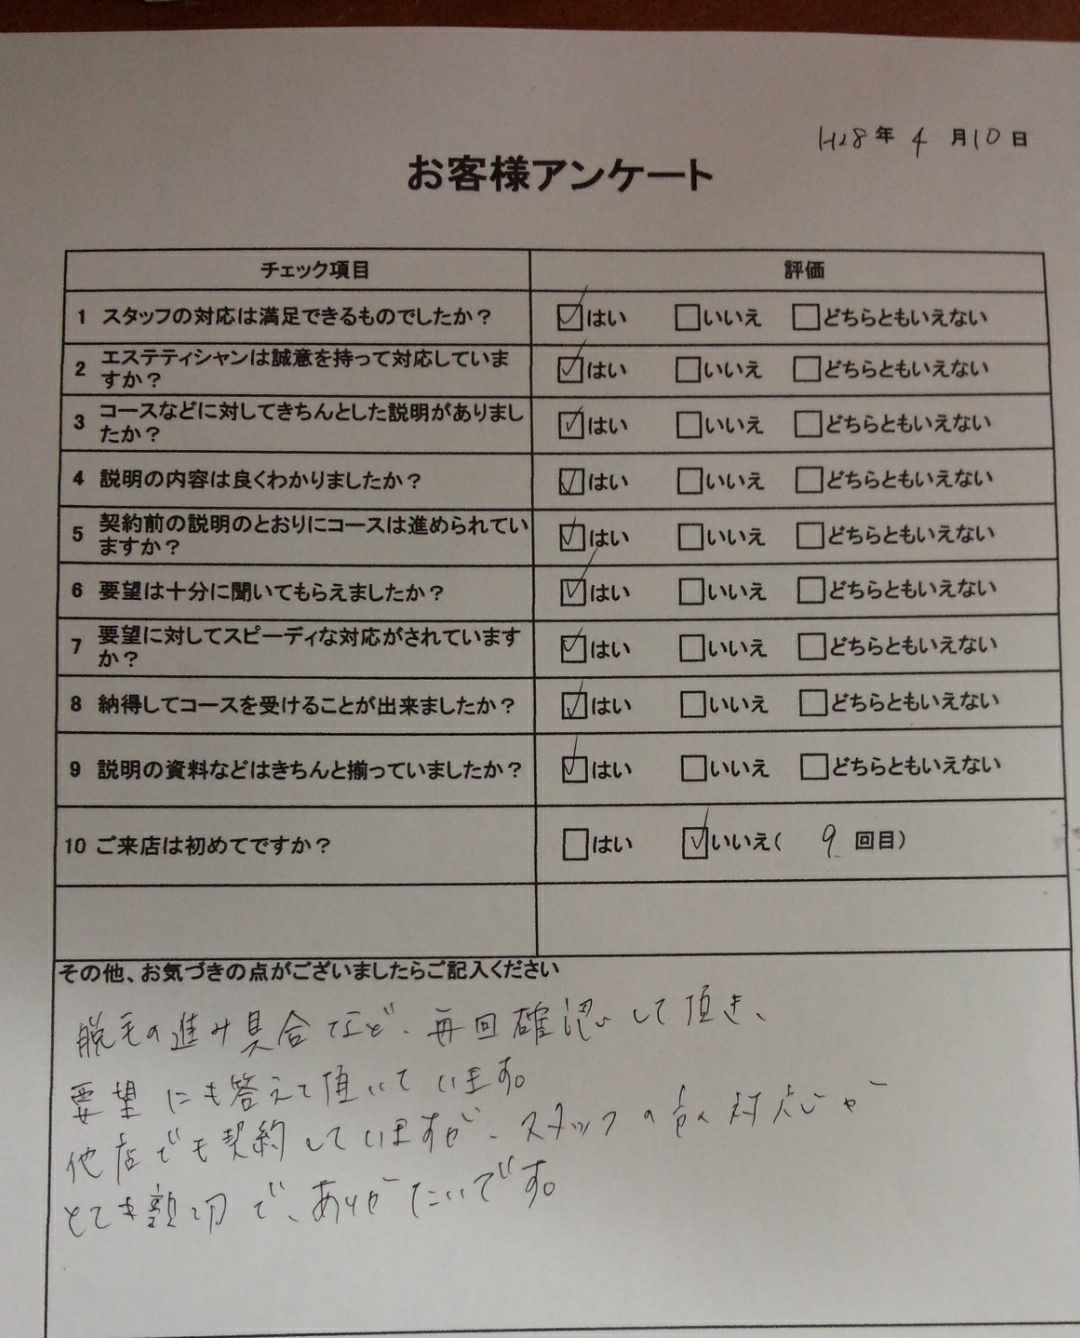 H28年 4月10日
お客様アンケート
チェック項目 評価
1 スタッフの対応は満足できるものでしたか? ☑はい □いいえ □どちらともいえない
2 エステティシャンは誠意を持って対応していま
すか? ☑はい □いいえ □どちらともいえない
3 コースなどに対してきちんとした説明がありまし
たか? ☑はい □いいえ □どちらともいえない
4 説明の内容は良くわかりましたか? ☑はい □いいえ □どちらともいえない
5 契約前の説明のとおりにコースは進められてい
ますか? ☑はい □いいえ □どちらともいえない
6 要望は十分に聞いてもらえましたか? ☑はい □いいえ □どちらともいえない
7 要望に対してスピーディな対応がされています
か? ☑はい □いいえ □どちらともいえない
8 納得してコースを受けることが出来ましたか? ☑はい □いいえ □どちらともいえない
9 説明の資料などはきちんと揃っていましたか? ☑はい □いいえ □どちらともいえない
10 ご来店は初めてですか? □はい ☑いいえ( 9 回目)
その他、お気づきの点がございましたらご記入ください
脱毛の進み具合など、毎回確認して頂き、
要望にも答えて頂いています。
他店でも契約していますが、スタッフの 対応が
とても親切で、ありがたいです。